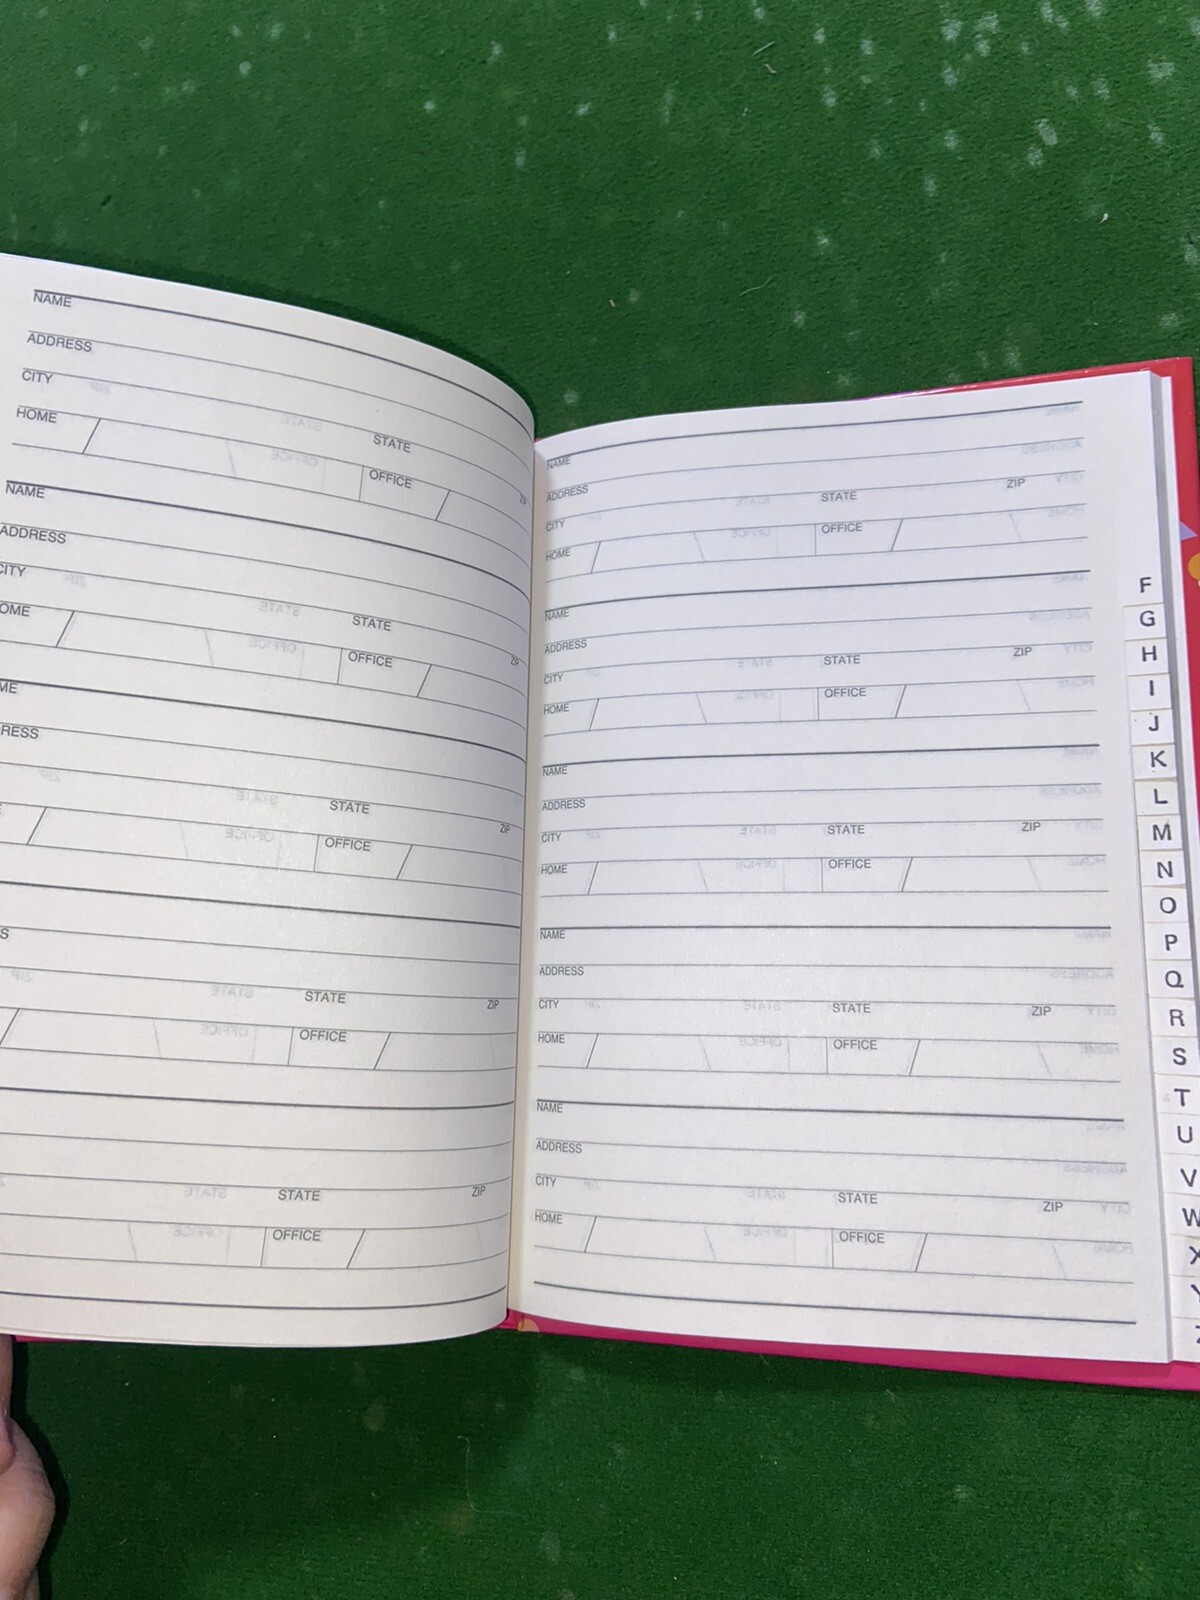 NAME
ADDRESS
CITY STATE ZIP
HOME OFFICE
NAME
ADDRESS
CITY STATE ZIP
OME OFFICE
ME
RESS
STATE ZIP
OFFICE
S
STATE ZIP
OFFICE
STATE ZIP
OFFICE
NAME
ADDRESS
CITY STATE ZIP
HOME OFFICE
NAME
ADDRESS
CITY STATE ZIP
HOME OFFICE
NAME
ADDRESS
CITY STATE ZIP
HOME OFFICE
NAME
ADDRESS
CITY STATE ZIP
HOME OFFICE
NAME
ADDRESS
CITY STATE ZIP
HOME OFFICE
F
G
H
I
J
K
L
M
N
O
P
Q
R
S
T
U
V
W
X
Y
Z